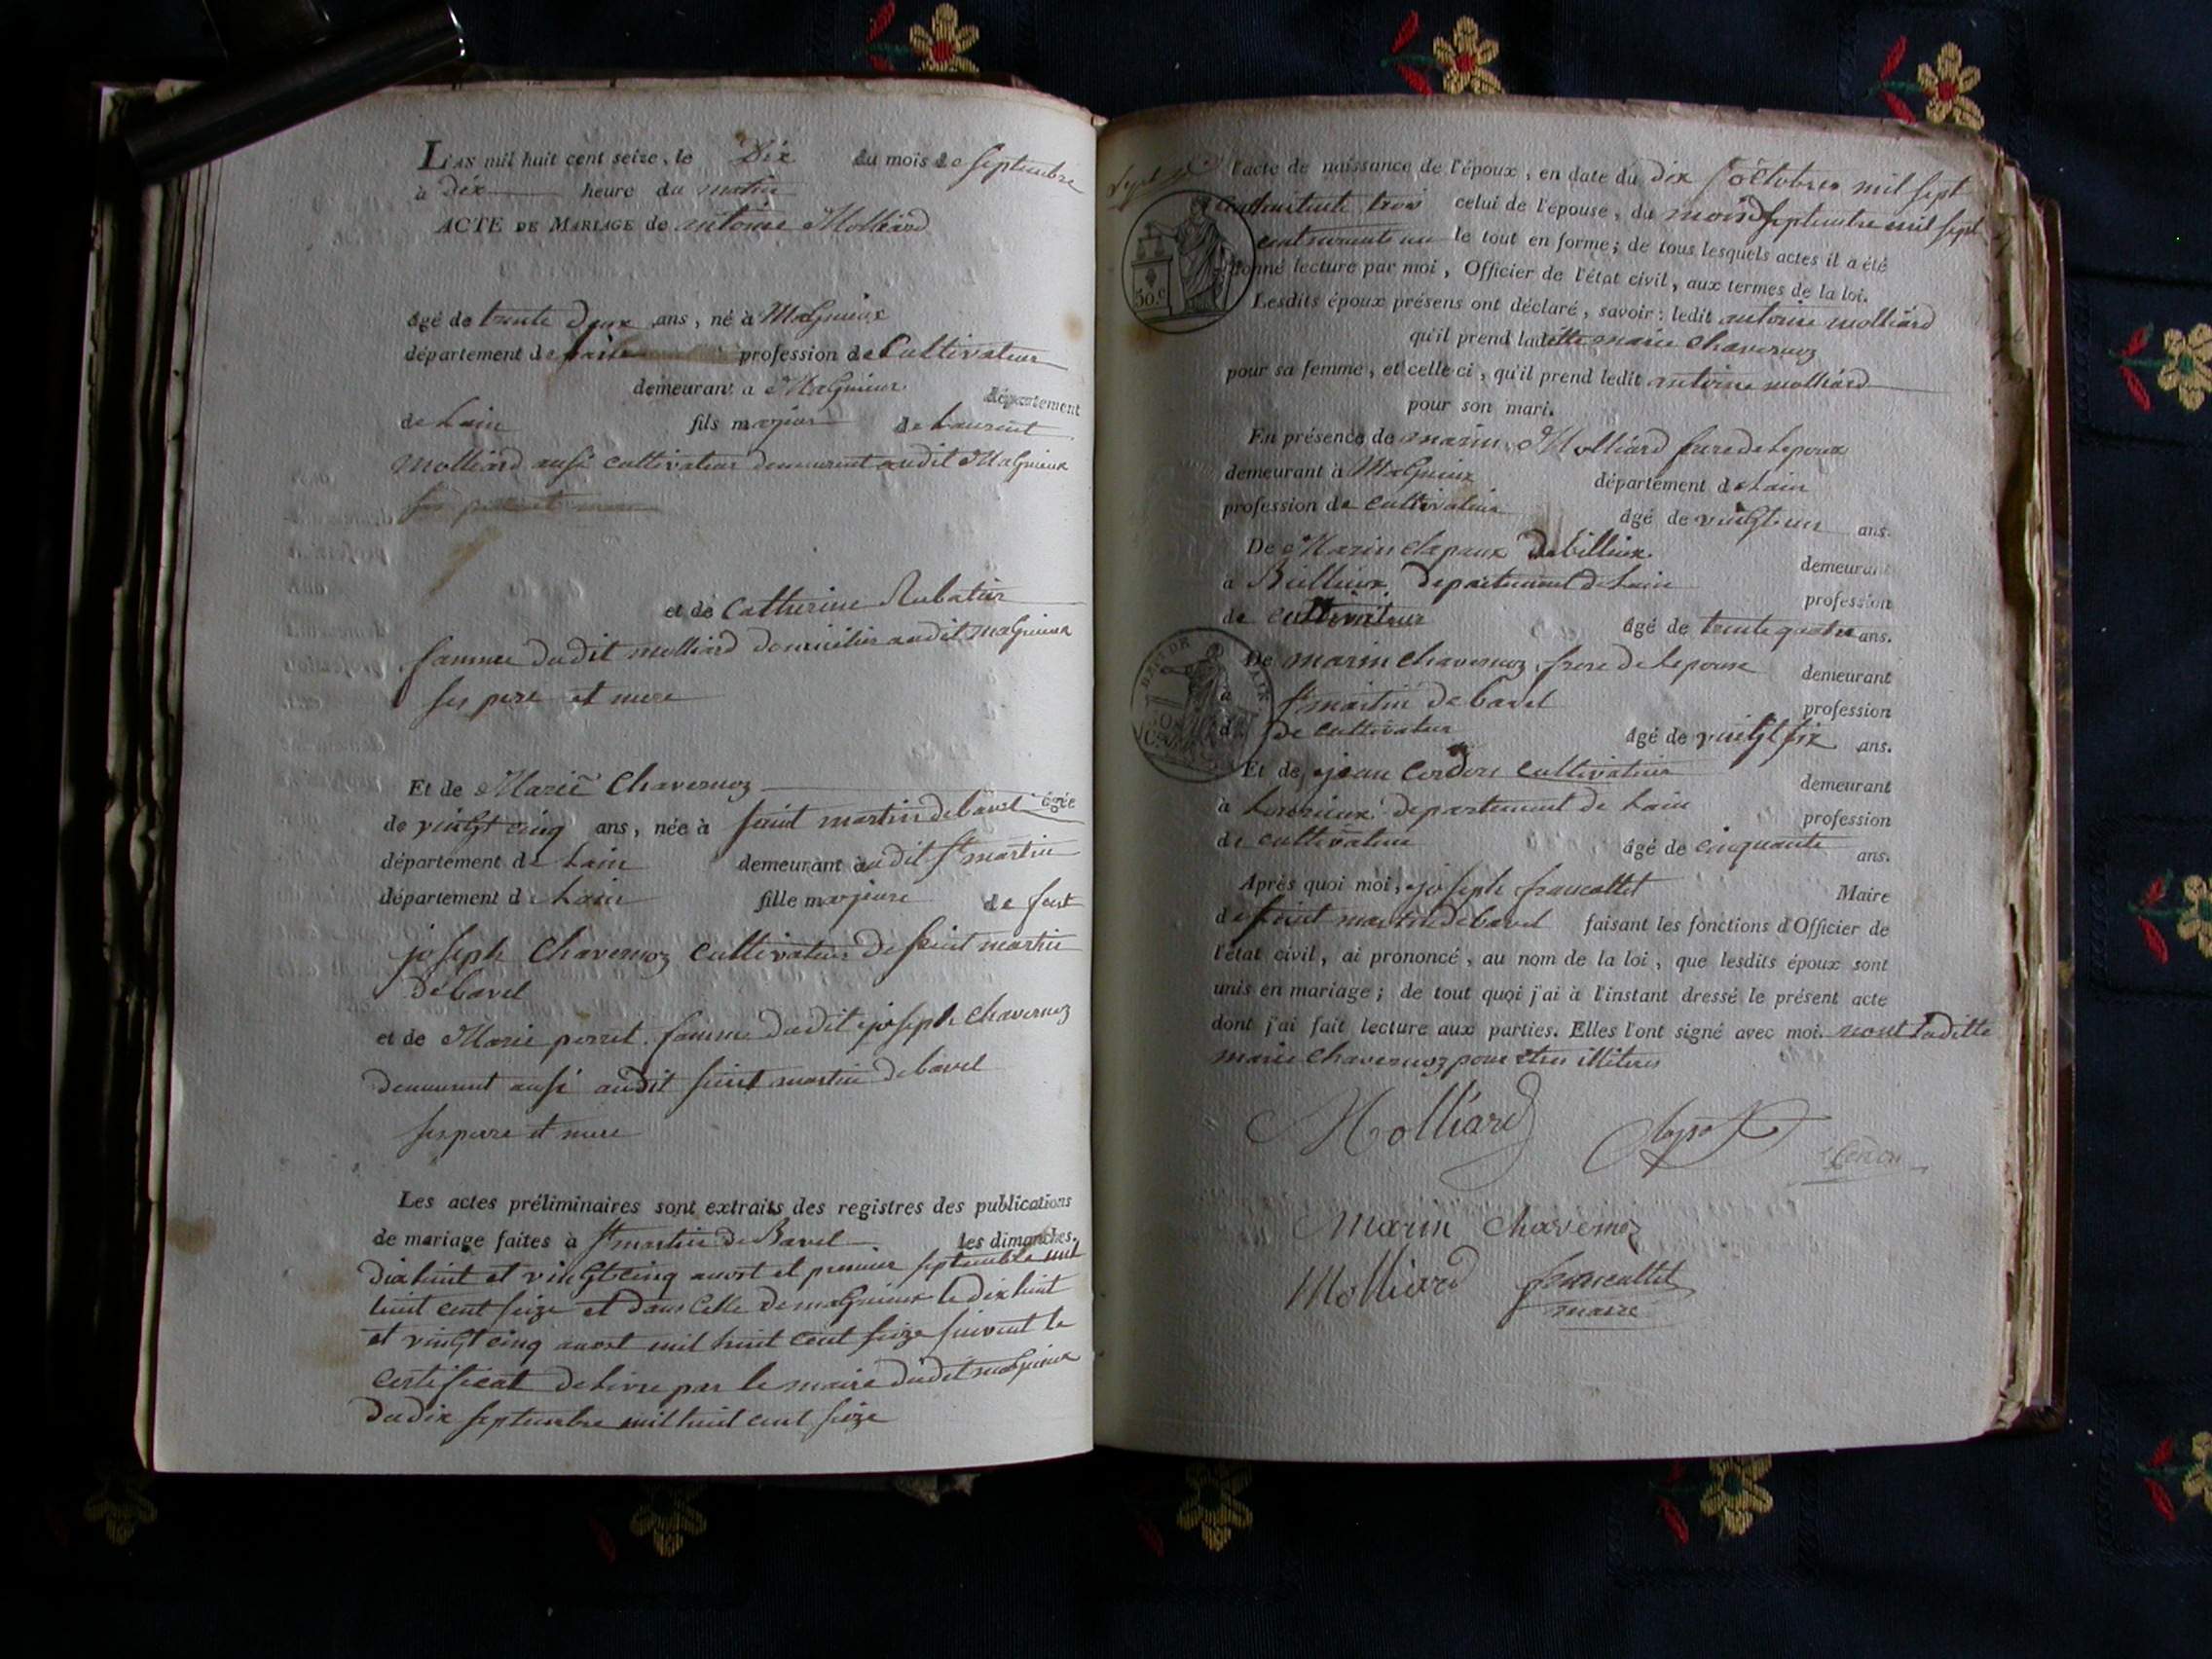 L'AN mil huit cent seize, le Dix du mois de septembre
à dix heure du matin
ACTE DE MARIAGE de antoine Molliard
âgé de trente deux ans, né à Magnieux
département de profession de Cultivateur
demeurant a Magnieux département
de Lain fils majeur de Laurent
Molliard ausi cultivateur demeurent audit Magnieux
et de Catherine Rubatier
famme dudit molliard domicilies audit magnieux
ses pere et mere
Et de Marie Chavernoz âgée
de vingt cinq ans, née à saint martin de bavel
département de Lain demeurant audit st martin
département de Lain fille majeure de
joseph Chavernoz cultivateur de saint martin
de bavel
et de Marie perret famme dudit joseph chavernoz
demeurent ausi audit saint martin de bavel
ses pere et mere
Les actes préliminaires sont extraits des registres des publications
de mariage faites à st martin de Bavel les dimanches,
dix huit et vingt cinq auost et premier septembre mil
huit cent seize et dans celle de magnieux le dix huit
et vingt cinq auost mil huit cent seize suivent le
certificat delivre par le maire dudit magnieux
du dix septembre mil huit cent seize
l'acte de naissance de l'époux, en date du dix octobre mil sept
cent huitente trois celui de l'épouse, du mois septembre mil sept
cent nonante un le tout en forme; de tous lesquels actes il a été
donné lecture par moi, Officier de l'état civil, aux termes de la loi.
50.c
Lesdits époux présens ont déclaré, savoir: ledit antoine molliard
qu'il prend ladite marie chavernoz
pour sa femme, et celle ci, qu'il prend ledit antoine molliard
pour son mari.
En présence de marin Molliard frere de lepoux
demeurant à Magnieux département de Lain
profession de cultivateur âgé de vingt un ans.
De Marin de billieux demeurant
a Billieux departement de Lain profession
de cultivateur âgé de trente quatre ans.
De marin chavernoz frere de lepouse demeurant
a st martin de bavel profession
d de cultivateur âgé de vingt six ans.
Et de jean Cordon cultivateur demeurant
à departement de Lain profession
de cultivateur âgé de cinquante ans.
Après quoi moi, joseph francollet Maire
de saint martin de bavel faisant les fonctions d'Officier de
l'état civil, ai prononcé, au nom de la loi, que lesdits époux sont
unis en mariage; de tout quoi j'ai à l'instant dressé le présent acte
dont j'ai fait lecture aux parties. Elles l'ont signé avec moi. nont laditte
marie chavernoz pour etres illiteres
Molliard
Marin Chavernoz
Molliard francollet
maire